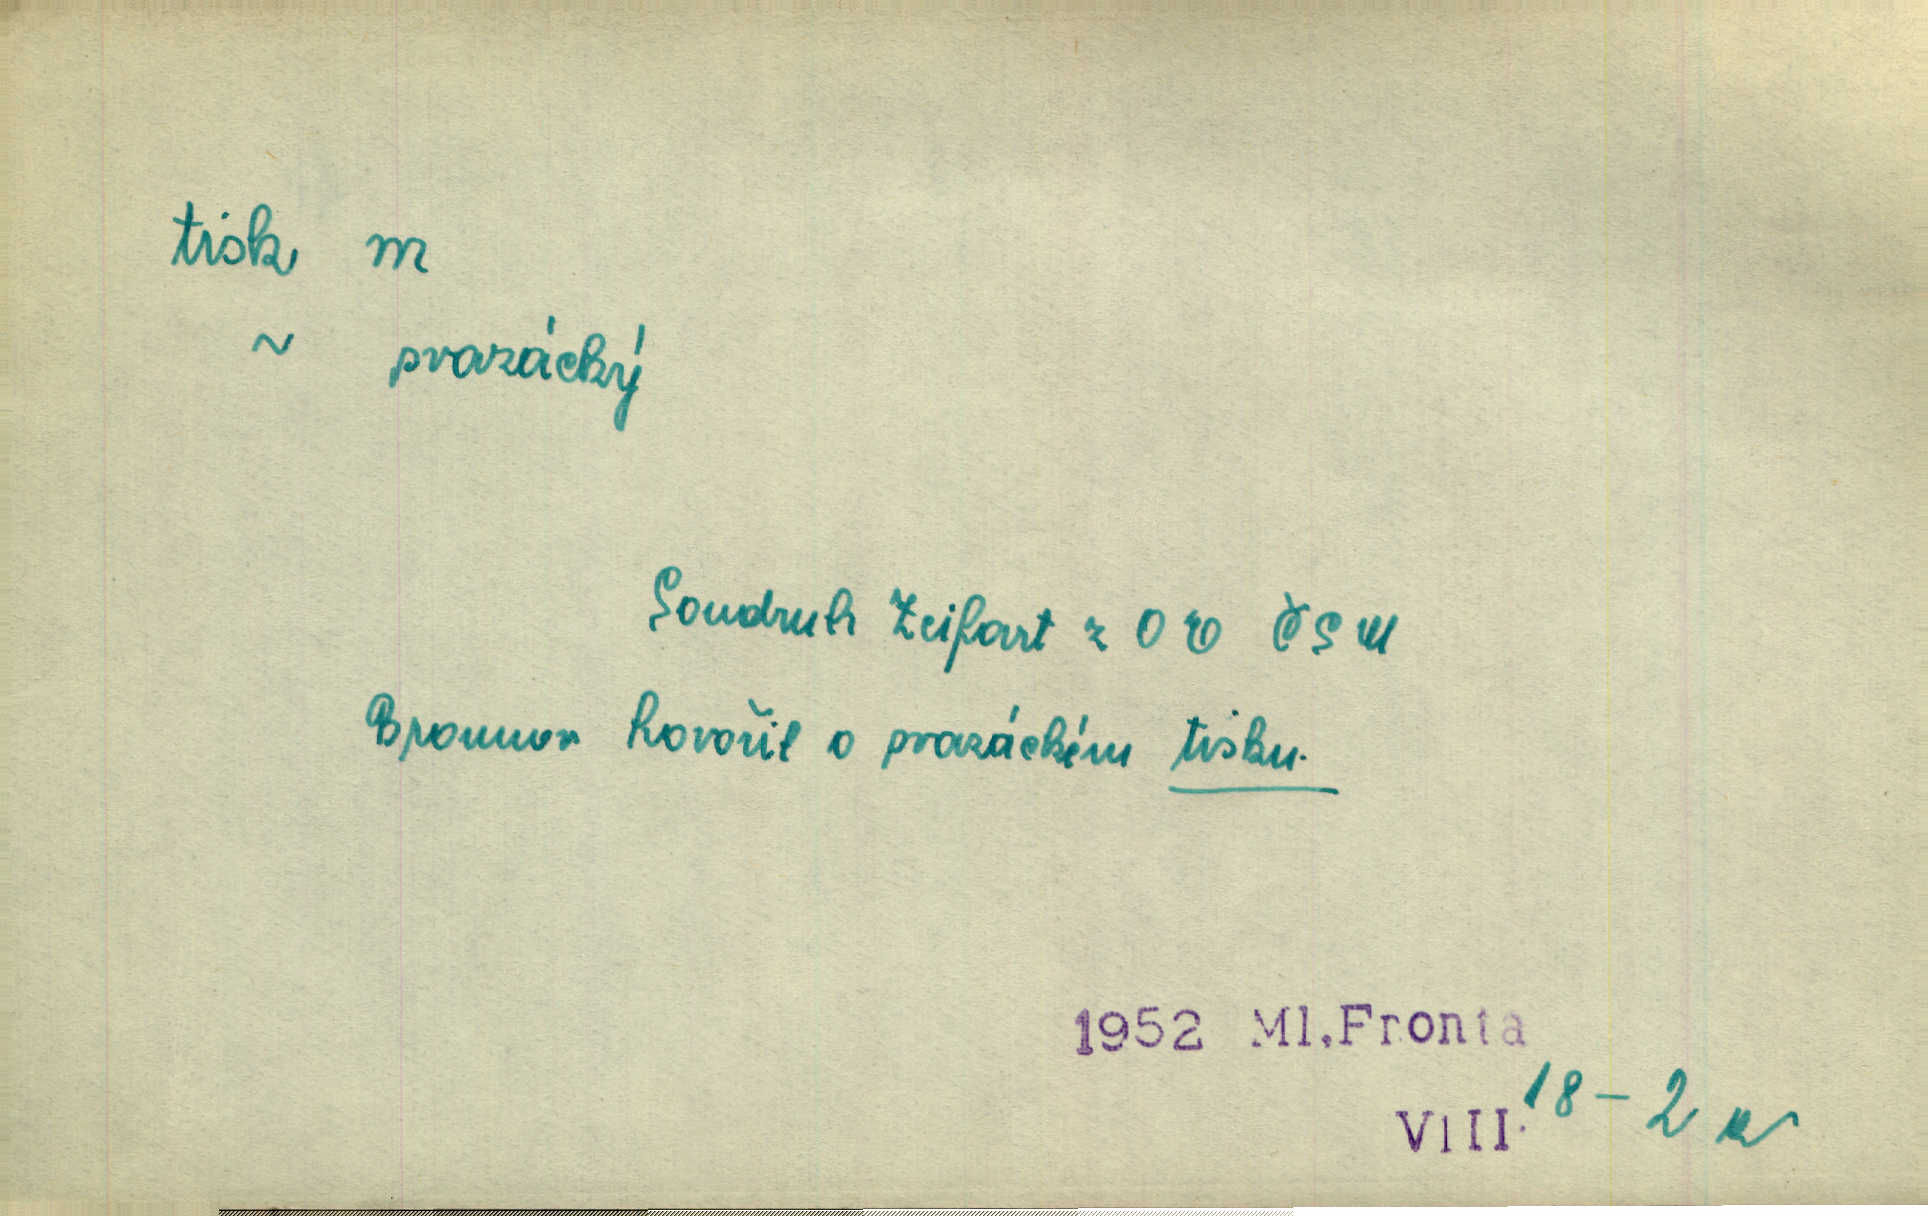 tisk, m
~ svazácký
Soudruh Zeifart z OV ČSM
Broumov hovořil o svazáckém tisku.
1952 Ml.Fronta
VIII. 18 – 2